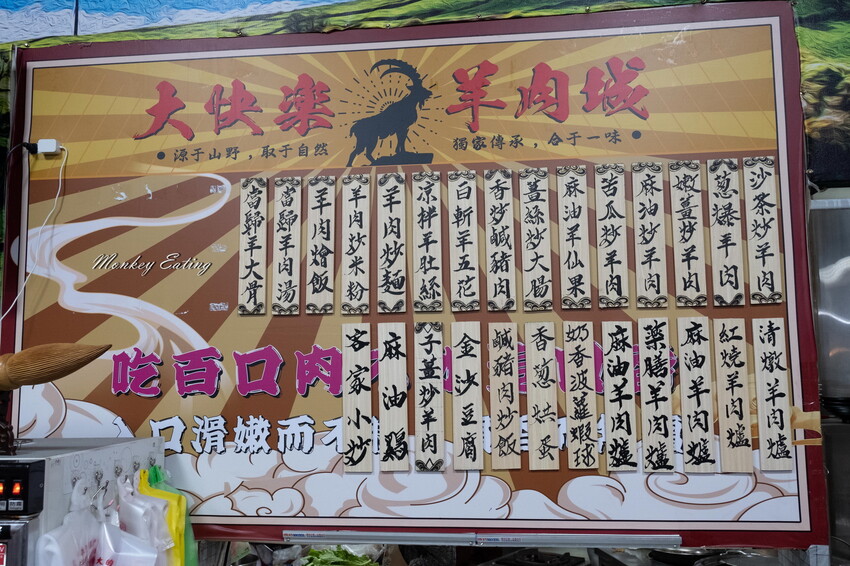 大快樂 羊肉城
源于山野，取于自然
獨家傳承，合于一味
沙茶炒羊肉
蔥爆羊肉
嫩薑炒羊肉
麻油炒羊肉
苦瓜炒羊肉
麻油羊仙果
薑絲炒大腸
香炒鹹豬肉
白斬羊五花
涼拌羊肚絲
羊肉炒麵
羊肉炒米粉
羊肉燴飯
當歸羊肉湯
當歸羊大骨
Monkey Eating
清燉羊肉爐
紅燒羊肉爐
麻油羊肉爐
藥膳羊肉爐
麻油羊肉爐
奶香菠蘿蝦球
香蔥烘蛋
鹹豬肉炒飯
金沙豆腐
子薑炒羊肉
麻油鷄
客家小炒
吃百口肉
口滑嫩而不